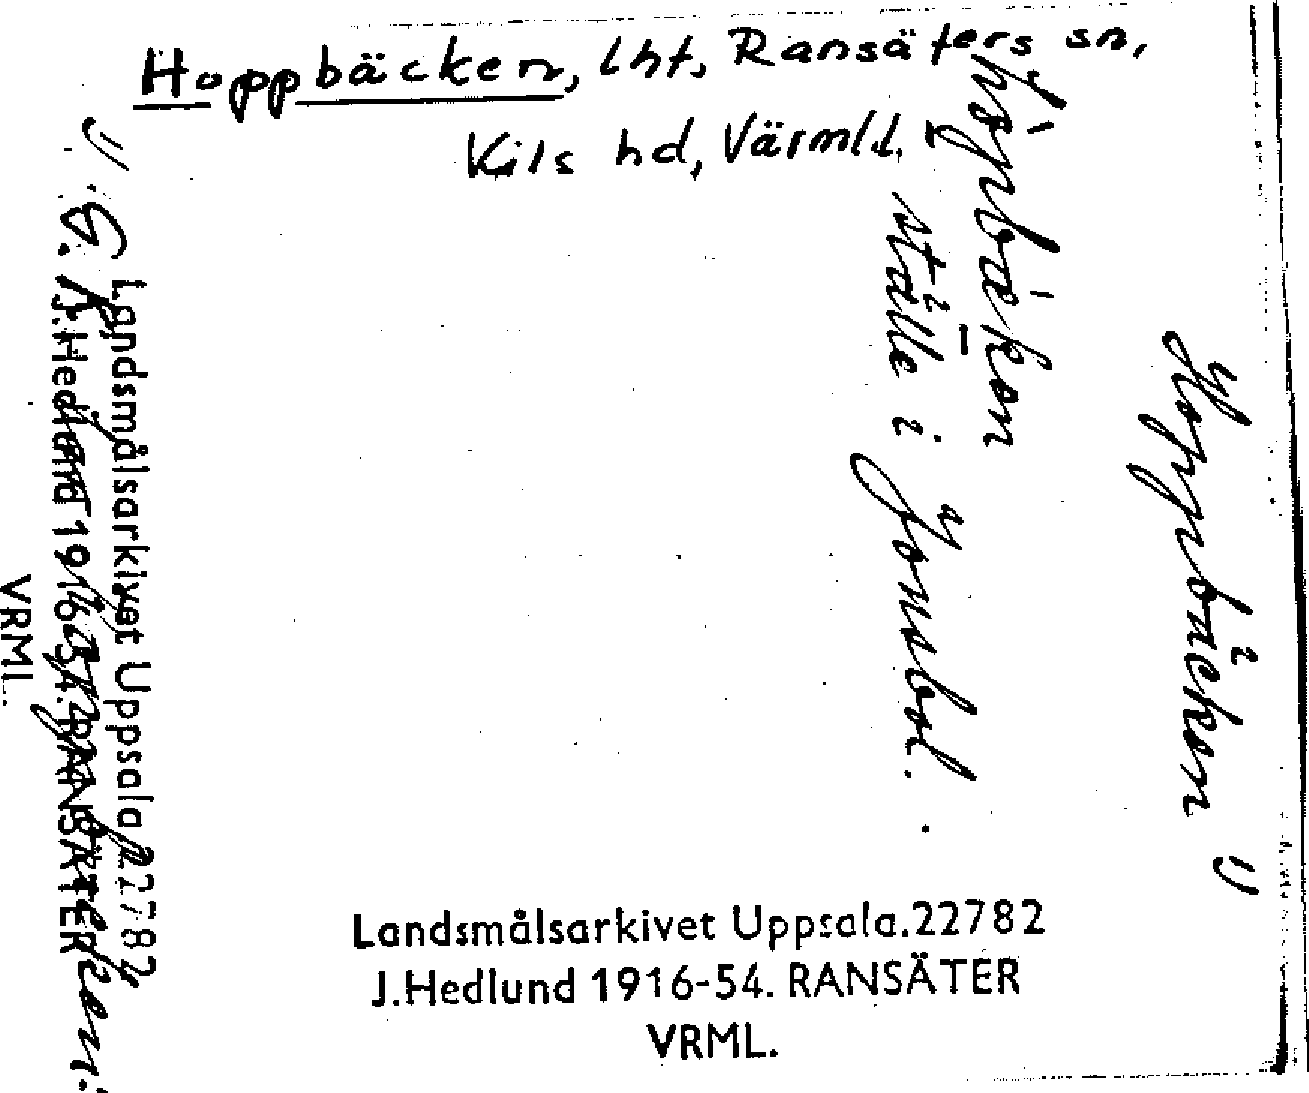 Hoppbäcken, lht, Ransäters sn,
Kils hd, Värml.
Hoppbäcken 1)
ställe i Jonsbol.
1)
Landsmålsarkivet Uppsala 22782
J.Hedlund 1916-54. RANSÄTER
VRML.
Landsmålsarkivet Uppsala.22782
J.Hedlund 1916-54. RANSÄTER
VRML.